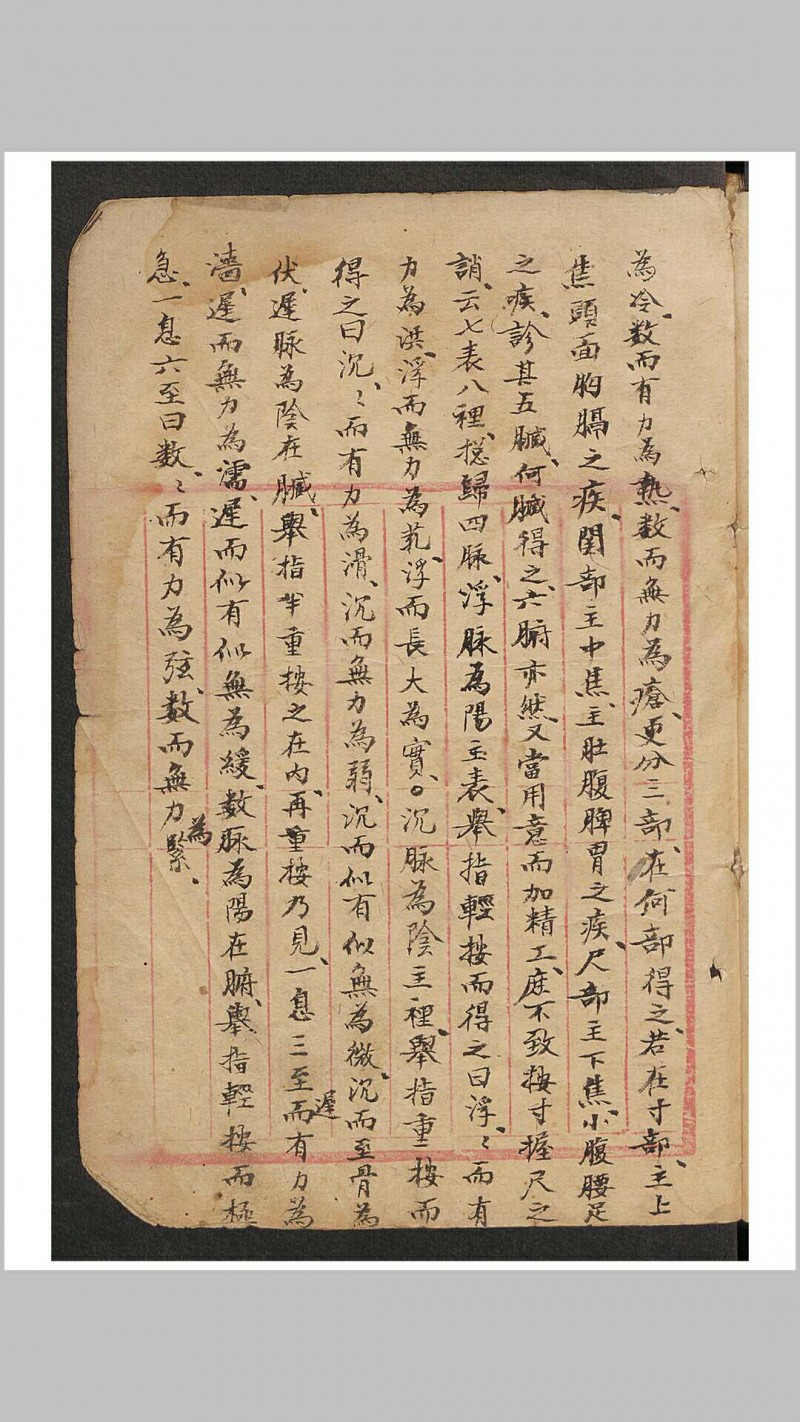 為冷、数而有力為熱、数而無力為瘡、更分三部、在何部得之、若在寸部、主上
焦頭面胸膈之疾、関部主中焦、主肚腹脾胃之疾、尺部主下焦、小腹腰足
之疾、診其五臟、何臟得之、六腑亦然、又當用意而加精工、庶不致按寸握尺之
誚、云七表八裡、捴歸四脉、浮脉為陽主表、舉指輕按而得之曰浮、〻而有
力為洪、浮而無力為芤、浮而長大為實、○沉脉為陰主裡、舉指重按而
得之曰沉、〻而有力為滑、沉而無力為弱、沉而似有似無為微、沉而至骨為
伏、遲脉為陰在臟、舉指半重按之在内、再重按乃見、一息三至而遲有力為
濇、遲而無力為濡、遲而似有似無為緩、数脉為陽在腑、舉指輕按而極
急、一息六至曰数、〻而有力為弦、数而無力為緊、